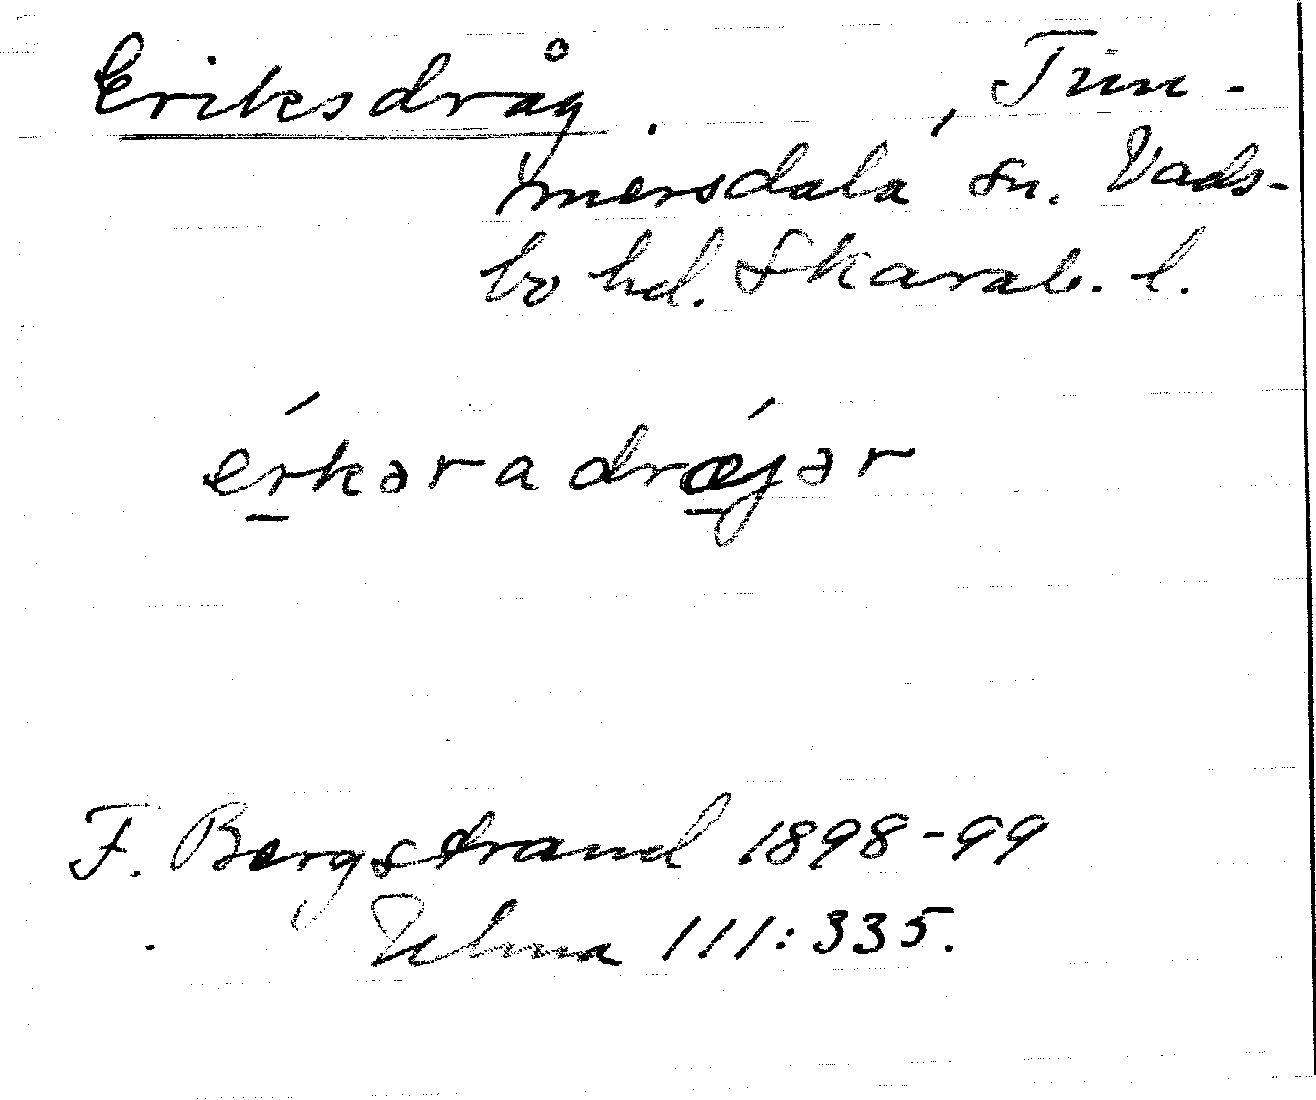 Eriksdråg. , Tim-
mersdala sn. Vads-
bo hd. Skarab. l.
érkəradrǽjər
F. Bergstrand 1898-99
Ulma 111:335.